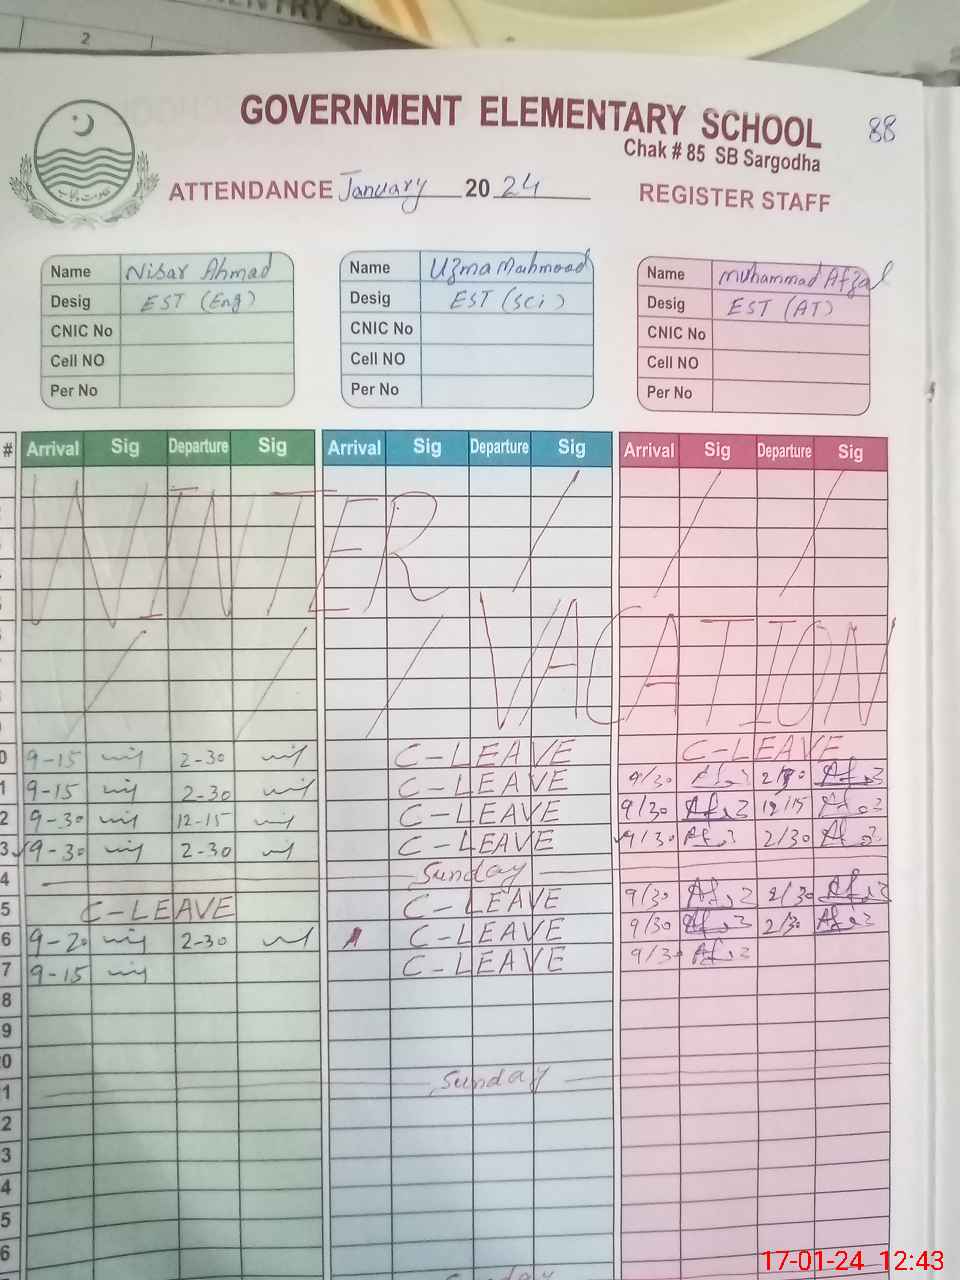 2
GOVERNMENT ELEMENTARY SCHOOL
88
Chak # 85 SB Sargodha
ATTENDANCE January 2024
REGISTER STAFF
Name Nisar Ahmad
Desig EST (Eng)
CNIC No
Cell NO
Per No
Name Uzma Mahmood
Desig EST (Sci)
CNIC No
Cell NO
Per No
Name Muhammad Afzal
Desig EST (AT)
CNIC No
Cell NO
Per No
# Arrival Sig Departure Sig Arrival Sig Departure Sig Arrival Sig Departure Sig
WINTER / / /
/ / / VACATION
0 9-15 2-30 C-LEAVE C-LEAVE
1 9-15 2-30 C-LEAVE 9/30 2/30
2 9-30 12-15 C-LEAVE 9/30 12/15
3 9-30 2-30 C-LEAVE 9/30 2/30
4 Sunday
5 C-LEAVE C-LEAVE 9/30 2/30
6 9-20 2-30 C-LEAVE 9/30 2/30
7 9-15 C-LEAVE 9/30
8
9
0
1 Sunday
2
3
4
5
6
Sunday
17-01-24 12:43